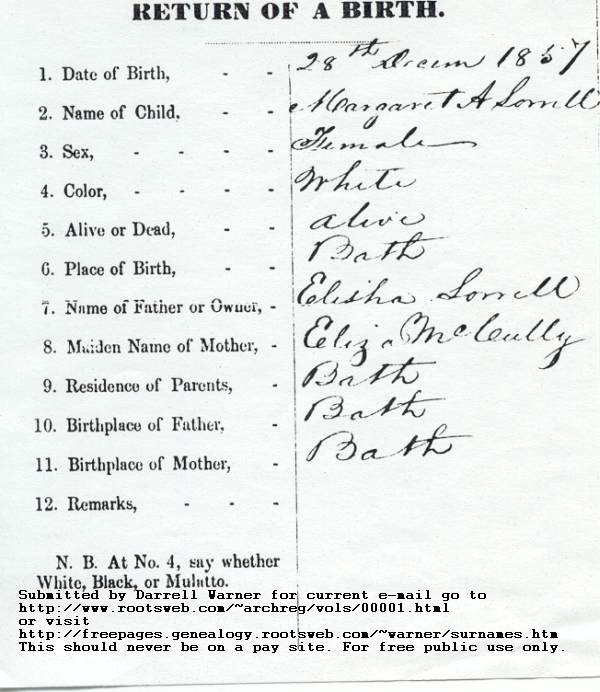 RETURN OF A BIRTH.
1. Date of Birth, - - 28th Decem 1857
2. Name of Child, - - Margaret A Sorrell
3. Sex, - - - - Female
4. Color, - - - - White
5. Alive or Dead, - - alive
6. Place of Birth, - - Bath
7. Name of Father or Owner, - Elisha Sorrell
8. Maiden Name of Mother, - Eliza McCully
9. Residence of Parents, - Bath
10. Birthplace of Father, - Bath
11. Birthplace of Mother, - Bath
12. Remarks, - - -
N. B. At No. 4, say whether
White, Black, or Mulatto.
Submitted by Darrell Warner for current e-mail go to
http://www.rootsweb.com/~archreg/vols/00001.html
or visit
http://freepages.genealogy.rootsweb.com/~warner/surnames.htm
This should never be on a pay site. For free public use only.